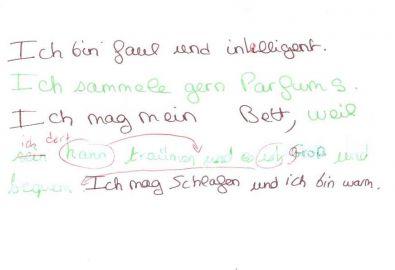 Ich bin faul und intelligent.
Ich sammele gern Parfums.
Ich mag mein Bett, weil
ich dort
sein kann träumen und es ist Groß und
bequem. Ich mag Schlafen und ich bin warm.